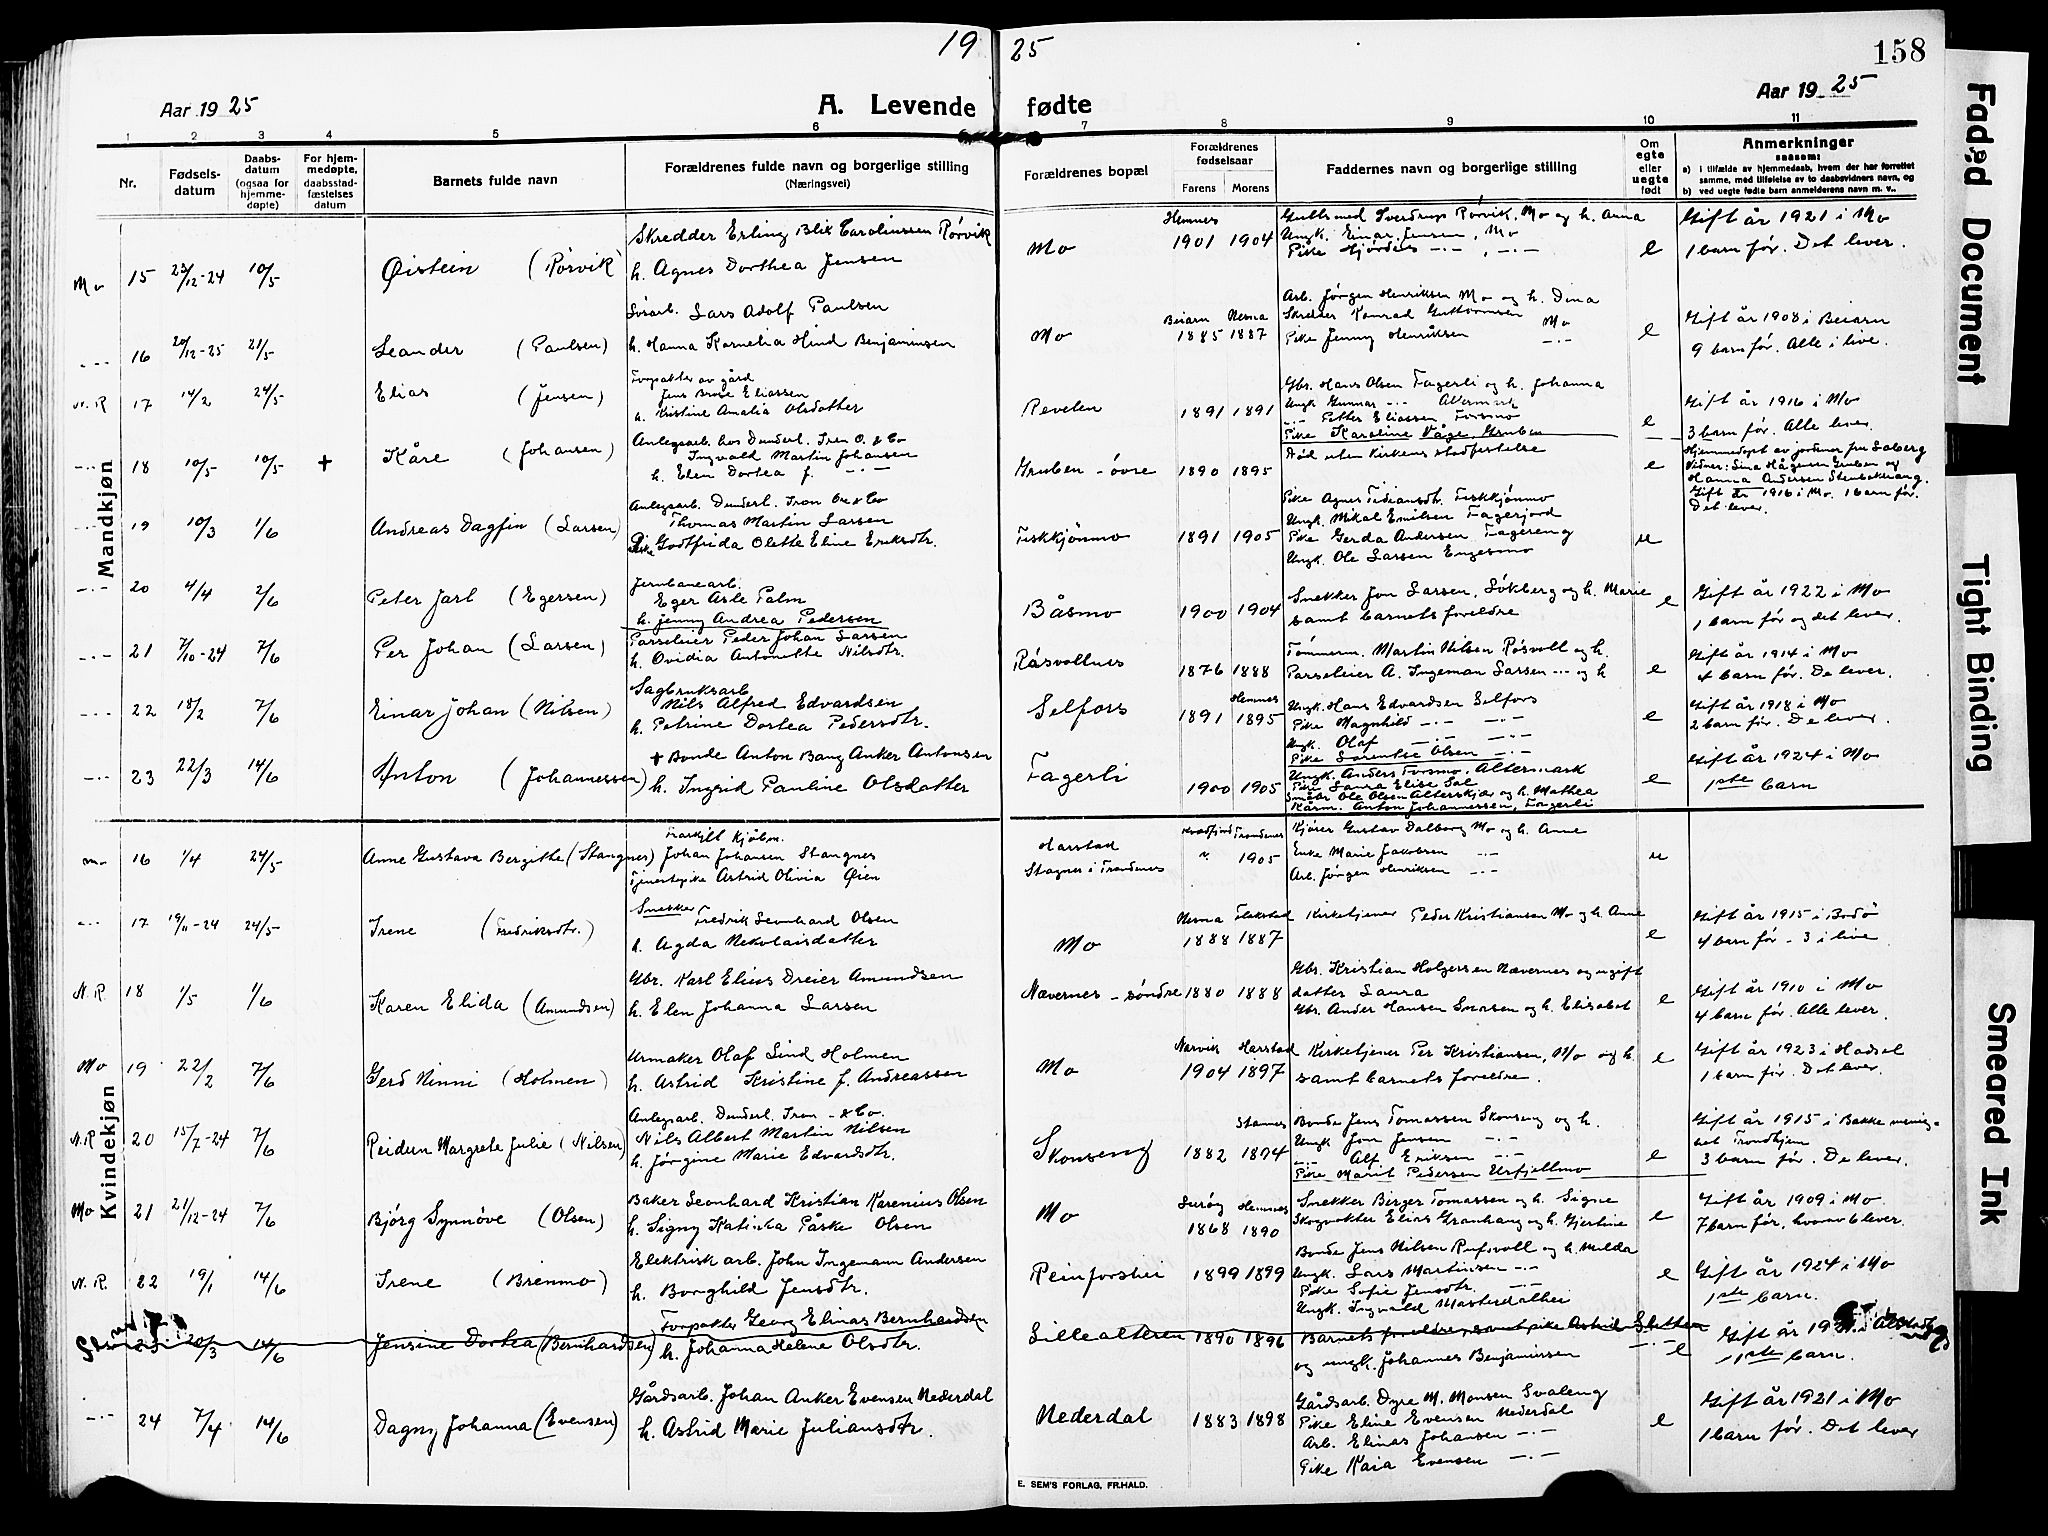 19 25
158
Aar 19 25
A. Levende fødte
Aar 19 25
1 2 3 4 5 6 7 8 9 10 11
Nr.
Fødsels-
datum
Daabs-
datum
(ogsaa for
hjemme-
døpte)
For hjem-
medøpte,
daabsstad-
fæstelses
datum
Barnets fulde navn
Forældrenes fulde navn og borgerlige stilling
(Næringsvei)
Forældrenes bopæl
Forældrenes
fødselsaar
Farens Morens
Faddernes navn og borgerlige stilling
Om
egte
eller
uegte
født
Anmerkninger
saasom:
a) i tilfælde av hjemmedaab, hvem der har forrettet
samme, med tilføielse av to daabsvidners navn, og
b) ved uegte fødte barn anmelderens navn m. v..
Mandkjøn
Mo 15 23/12-24 10/5 Øistein (Rørvik)
Skredder Erling Blix Carolinssen Rørvik
h. Agnes Dorthea Jensen
Mo Hemnes 1901 1904
Ungk. Einar Jensen, Mo
Pike Hjørdis -.- , -.-
e
Gift år 1921 i Mo
1 barn før. Det lever.
-.- 16 20/12-25 21/5 Leander (Paulsen)
Lars Adolf Paulsen
h. Hanna Kornelia Hind Benjaminsen
Mo Beiarn Nesna 1885 1887
Arb. Jørgen Henriksen Mo og h. Dina
Skredder Konrad Guttormsen Mo
Pike Jenny Henriksen -.-
e
Gift år 1908 i Beiarn
9 barn før. Alle i live.
N.R 17 14/2 24/5 Elias (Jensen)
Forpakter av gård
Jens Brose Eliassen
h. Kristine Amalia Olsdatter
Revelen 1891 1891
Gbr. Hans Olsen Fagerli og h. Johanna
Ungk Gunnar -.- Altermark
-.- Petter Eliassen Forsmo
Pike Karoline Våge, Gruben
e
Gift år 1916 i Mo
3 barn før. Alle lever.
-.- 18 10/5 10/5 + Kåre (Johansen)
Anlegsarb. hos Dunderl. Iron O. & Co
Ingvald Martin Johansen
h. Elen Dortea f. -.-
Gruben - øvre 1890 1895
Død uten kirkens stadfestelse
e
Hjemmedøpt av jordmor fru Soberg
Vidner: Lina Hågensen Gruben og
Hanna Andersen Stenbekvang.
Gift år 1916 i Mo. 1 barn før.
Det lever.
-.- 19 10/3 1/6 Andreas Dagfin (Larsen)
Anlegsarb. Dunderl. Iron Ore & Co
Thomas Martin Larsen
Pike Godtfrida Olette Eline Eriksdtr.
Fiskkjønmo 1891 1905
Pike Agnes Fidiansdtr. Fiskkjønmo
Ungk. Mikal Emilsen Fagerjord
Pike Gerda Andersen Fagereng
Ungk. Ole Larsen Engesmo
u
-.- 20 4/4 2/6 Peter Jarl (Egersen)
Jernbanearb.
Eger Asle Palm
h. Jenny Andrea Pedersen
Båsmo 1900 1904
Snekker Jon Larsen, Søkberg og h. Marie
samt barnets foreldre
e
Gift år 1922 i Mo
1 barn før og det lever.
-.- 21 7/10-24 7/6 Per Johan (Larsen)
Parseleier Peder Johan Larsen
h. Ovidia Antonette Nilsdtr.
Råsvollnes 1876 1888
Tømmerm. Martin Nilsen Røsvoll og h.
Parseleier A. Ingeman Larsen -.- og h
e
Gift år 1914 i Mo
4 barn før. De lever.
-.- 22 18/2 7/6 Einar Johan (Nilsen)
Sagbruksarb
Nils Alfred Edvardsen
h. Petrine Dortea Pedersdtr.
Selfors Hemnes 1891 1895
Ungk. Hans Edvardsen Selfors
Pike Magnhild -.- -.-
Ungk. Olaf -.- -.-
Pike Sorentse Olsen -.-
e
Gift år 1918 i Mo
2 barn før. De lever.
-.- 23 22/3 14/6 Anton (Johannessen)
+ Bonde Anton Bang Anker Antonsen
h. Ingrid Pauline Olsdatter
Fagerli 1900 1905
Ungk. Anders Forsmo. Altermark
Pike Laura Elise Sal
Småbr Ole Olsen Alterskjær og h. Mathea
Kårm. Anton Johannessen, Fagerli
e
Gift år 1924 i Mo
1ste barn
Kvindekjøn
Mo 16 1/4 24/5 Anne Gustava Bergithe (Stangnes)
Johan Johansen Stangnes
Tjenestepike Astrid Olivia Øien
Harstad
Stagnes i Trondenes
Kvedfjord Trondenes 1905
Kjører Gustav Dalberg Mo og h. Anne
Enke Marie Jakobsen -.-
Arb. Jørgen Henriksen -.-
u
-.- 17 19/11-24 24/5 Irene (Fredriksdtr.)
Snekker
Fredrik Leonhard Olsen
h. Agda Nekolaisdatter
Mo Nesna Flakstad 1888 1887
Kirketjener Peder Kristiansen Mo og h. Anne
e
Gift år 1915 i Bodø
4 barn før - 3 i live
N.R. 18 1/5 1/6 Karen Elida (Amundsen)
Gbr. Karl Elius Dreier Amundsen
h. Elen Johanna Larsen
Nævernes - søndre 1880 1888
Gbr. Kristian Holgersen Nævernes og ugift
datter Laura
Gbr. Ander Hansen Snorsen og h. Elisabet
e
Gift år 1910 i Mo
4 barn før. Alle lever.
Mo 19 22/2 7/6 Gerd Ninni (Holmen)
Urmaker Olaf Lind Holmen
h. Astrid Kristine f. Andreassen
Mo Narvik Harstad 1904 1897
Kirketjener Per Kristiansen, Mo og h.
samt barnets foreldre.
e
Gift år 1923 i Hadsel
1 barn før. Det lever.
N.R 20 15/7-24 7/6 Reidun Margrete Julie (Nilsen)
Anlegsarb. Dunderl. Iron - & Co.
Nils Albert Martin Nilsen
h. Jørgine Marie Edvardsdtr.
Skonseng Stamnes 1882 1894
Bonde Jens Tomassen Skonseng og h.
Ungk Jon Jensen -.-
-.- Alf Eriksen -.-
Pike Marit Pedersen Urfjellmo
e
Gift år 1915 i Bakke menig-
het Trondhjem
3 barn før. De lever.
Mo 21 21/12-24 7/6 Bjørg Synnøve (Olsen)
Baker Leonhard Kristian Karenius Olsen
h. Signy Katinka Påske Olsen
Mo Lurøy Hemnes 1868 1890
Snekker Birger Tomassen og h. Signe
Skogvokter Elias Granhaug og h. Gjertine
e
Gift år 1909 i Mo
7 barn før, hvorav 6 lever.
N.R. 22 19/1 14/6 Irene (Brenmo)
Elektrisk arb. John Ingemann Andersen
h. Borghild Jensdtr.
Reinforshei 1899 1899
Bonde Jens Nilsen Rufsvoll og h. Milda
Ungk. Lars Martinsen -.-
Pike Sofie Jensdtr. -.-
Ungk. Ingvald Masterdalhei
e
Gift år 1924 i Mo
1ste barn.
23 20/3 14/6 Jensine Dortea (Bernhardsen)
Forpakter Georg Elinas Bernhardsen
h. Johanna Helene Olsdtr.
Lillealteren 1890 1896
Barnets foreldre, samt pike Astrid Sletten
og ungk. Johannes Benjaminsen -.-
e
1ste barn.
-.- 24 7/4 14/6 Dagny Johanna (Evensen)
Gårdsarb. Johan Anker Evensen Nederdal
h. Astrid Marie Juliansdtr.
Nederdal 1883 1898
Gårdsarb. Dyre M. Monsen Svaleng
Pike Eline Evensen Nederdal
Arb. Elinas Johansen -.-
Pike Kaia Evensen -.-
e
Gift år 1921 i Mo
1 barn før. Det lever
E. SEM'S FORLAG, FR.HALD.
Faded Document
Tight Binding
Smeared Ink